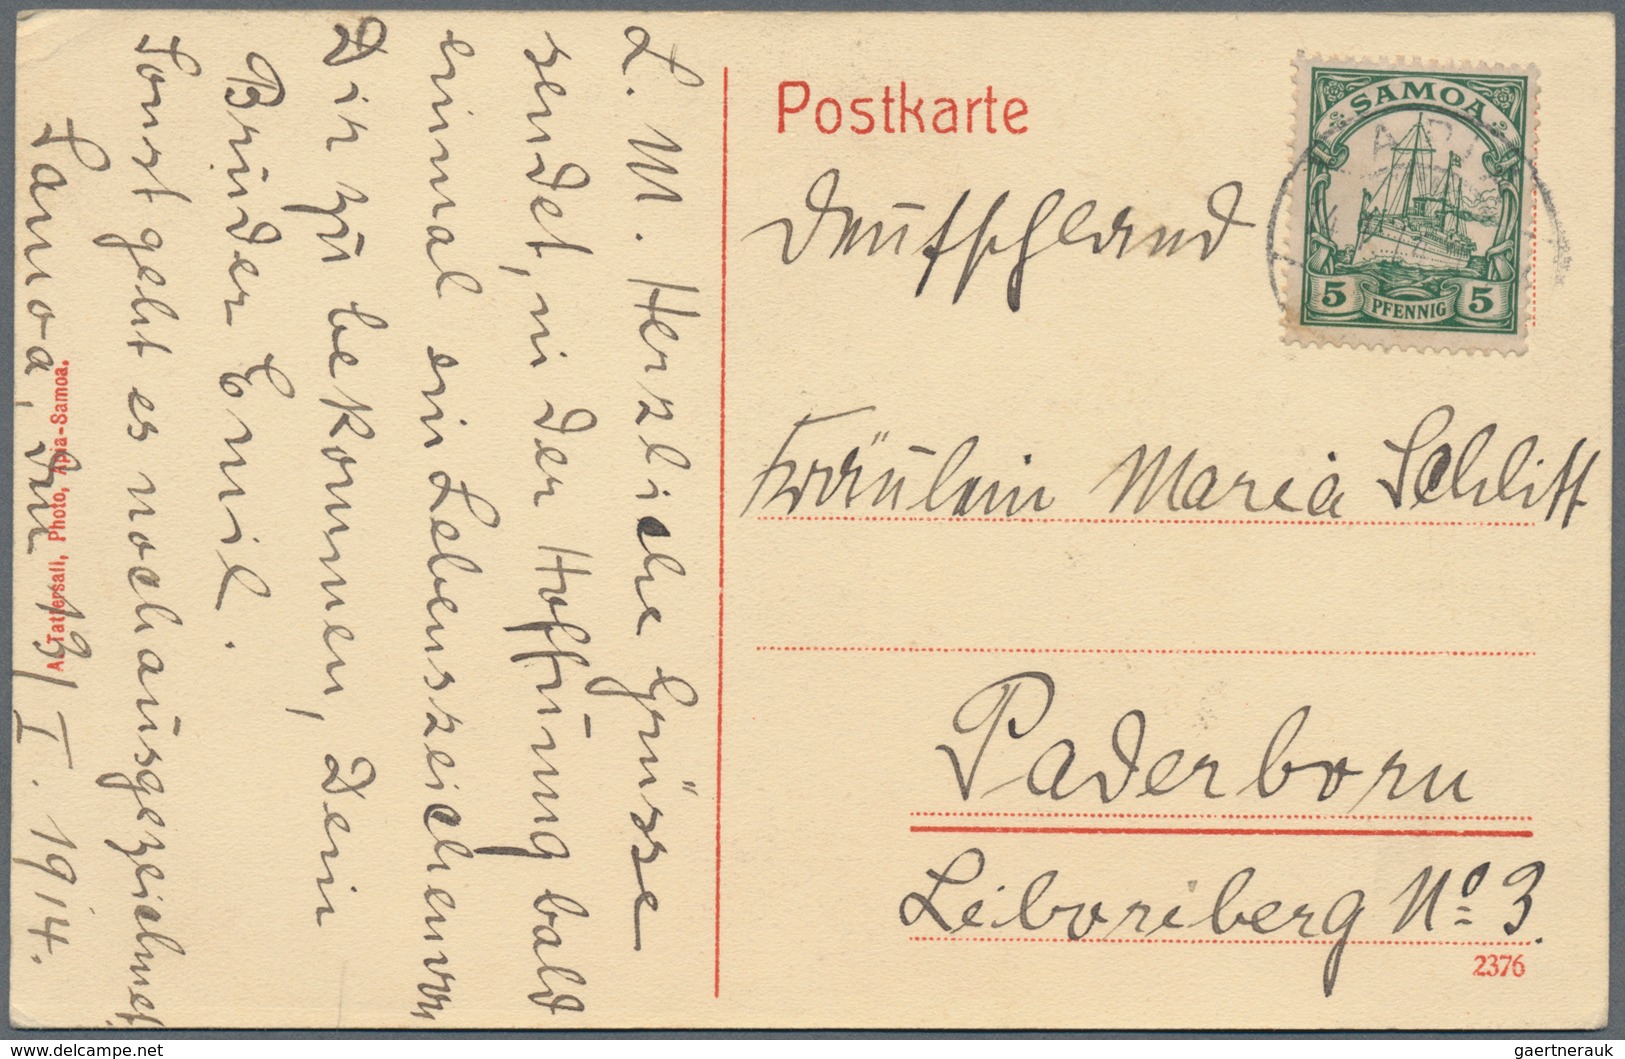 L. M. Herzliche Grüsse
sendet, in der Hoffnung bald
einmal ein Lebenszeichen von
Dir zu bekommen, Dein
Bruder Emil.
Sonst geht es noch ausgezeichnet
Samoa, den 19/I. 1914.
A. Tattersall, Photo, Apia-Samoa.
Postkarte
SAMOA
5 PFENNIG 5
Deutschland
Fräulein Maria Schlitt
Paderborn
Liboriberg No 3.
2376
www.delcampe.net
gaertnerauk